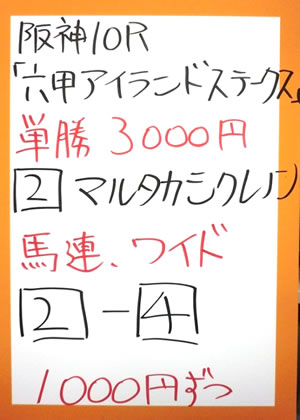 阪神10R
「六甲アイランドステークス」
単勝 3000円
2 マルタカシクレノン
馬連、ワイド
2-4
1000円ずつ